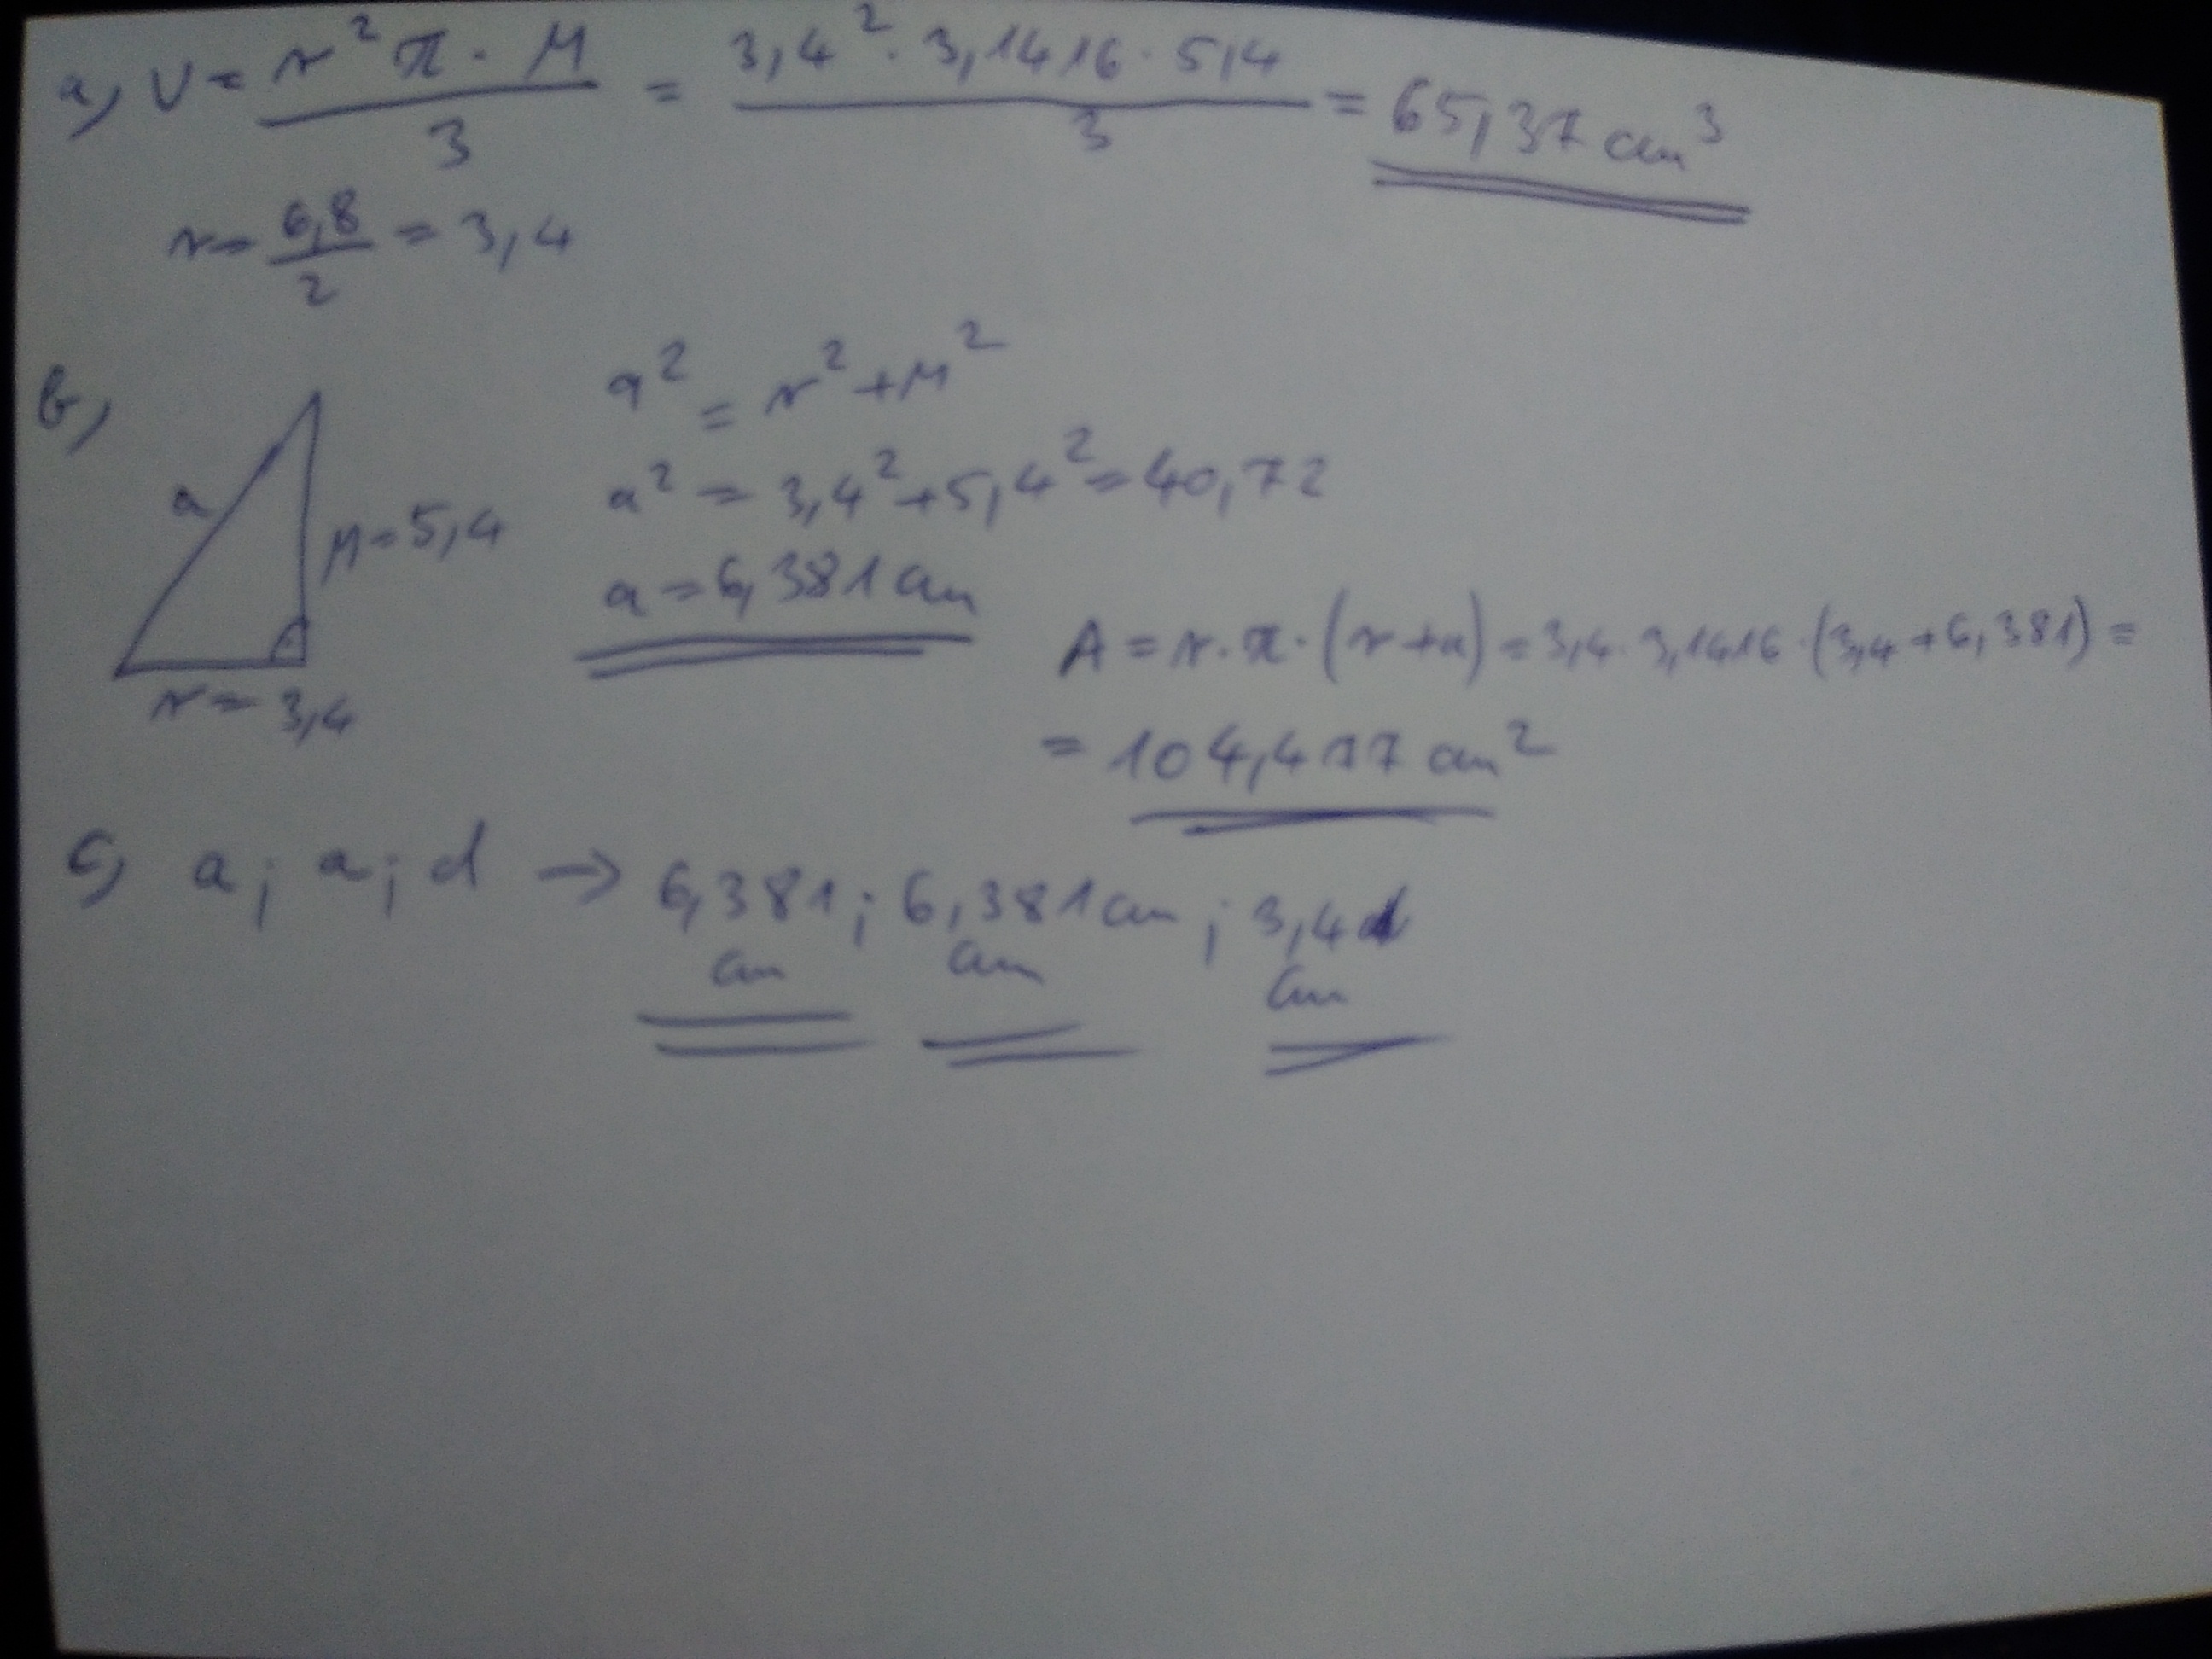 a, V = r² π · M / 3 = 3,4² · 3,1416 · 5,4 / 3 = 65,37 cm³
r = 6,8 / 2 = 3,4
b,
a
M = 5,4
r = 3,4
a² = r² + M²
a² = 3,4² + 5,4² = 40,72
a = 6,381 cm
A = r · π · (r + a) = 3,4 · 3,1416 · (3,4 + 6,381) =
= 104,477 cm²
c, a; a; d → 6,381; 6,381 cm; 3,4
cm cm cm